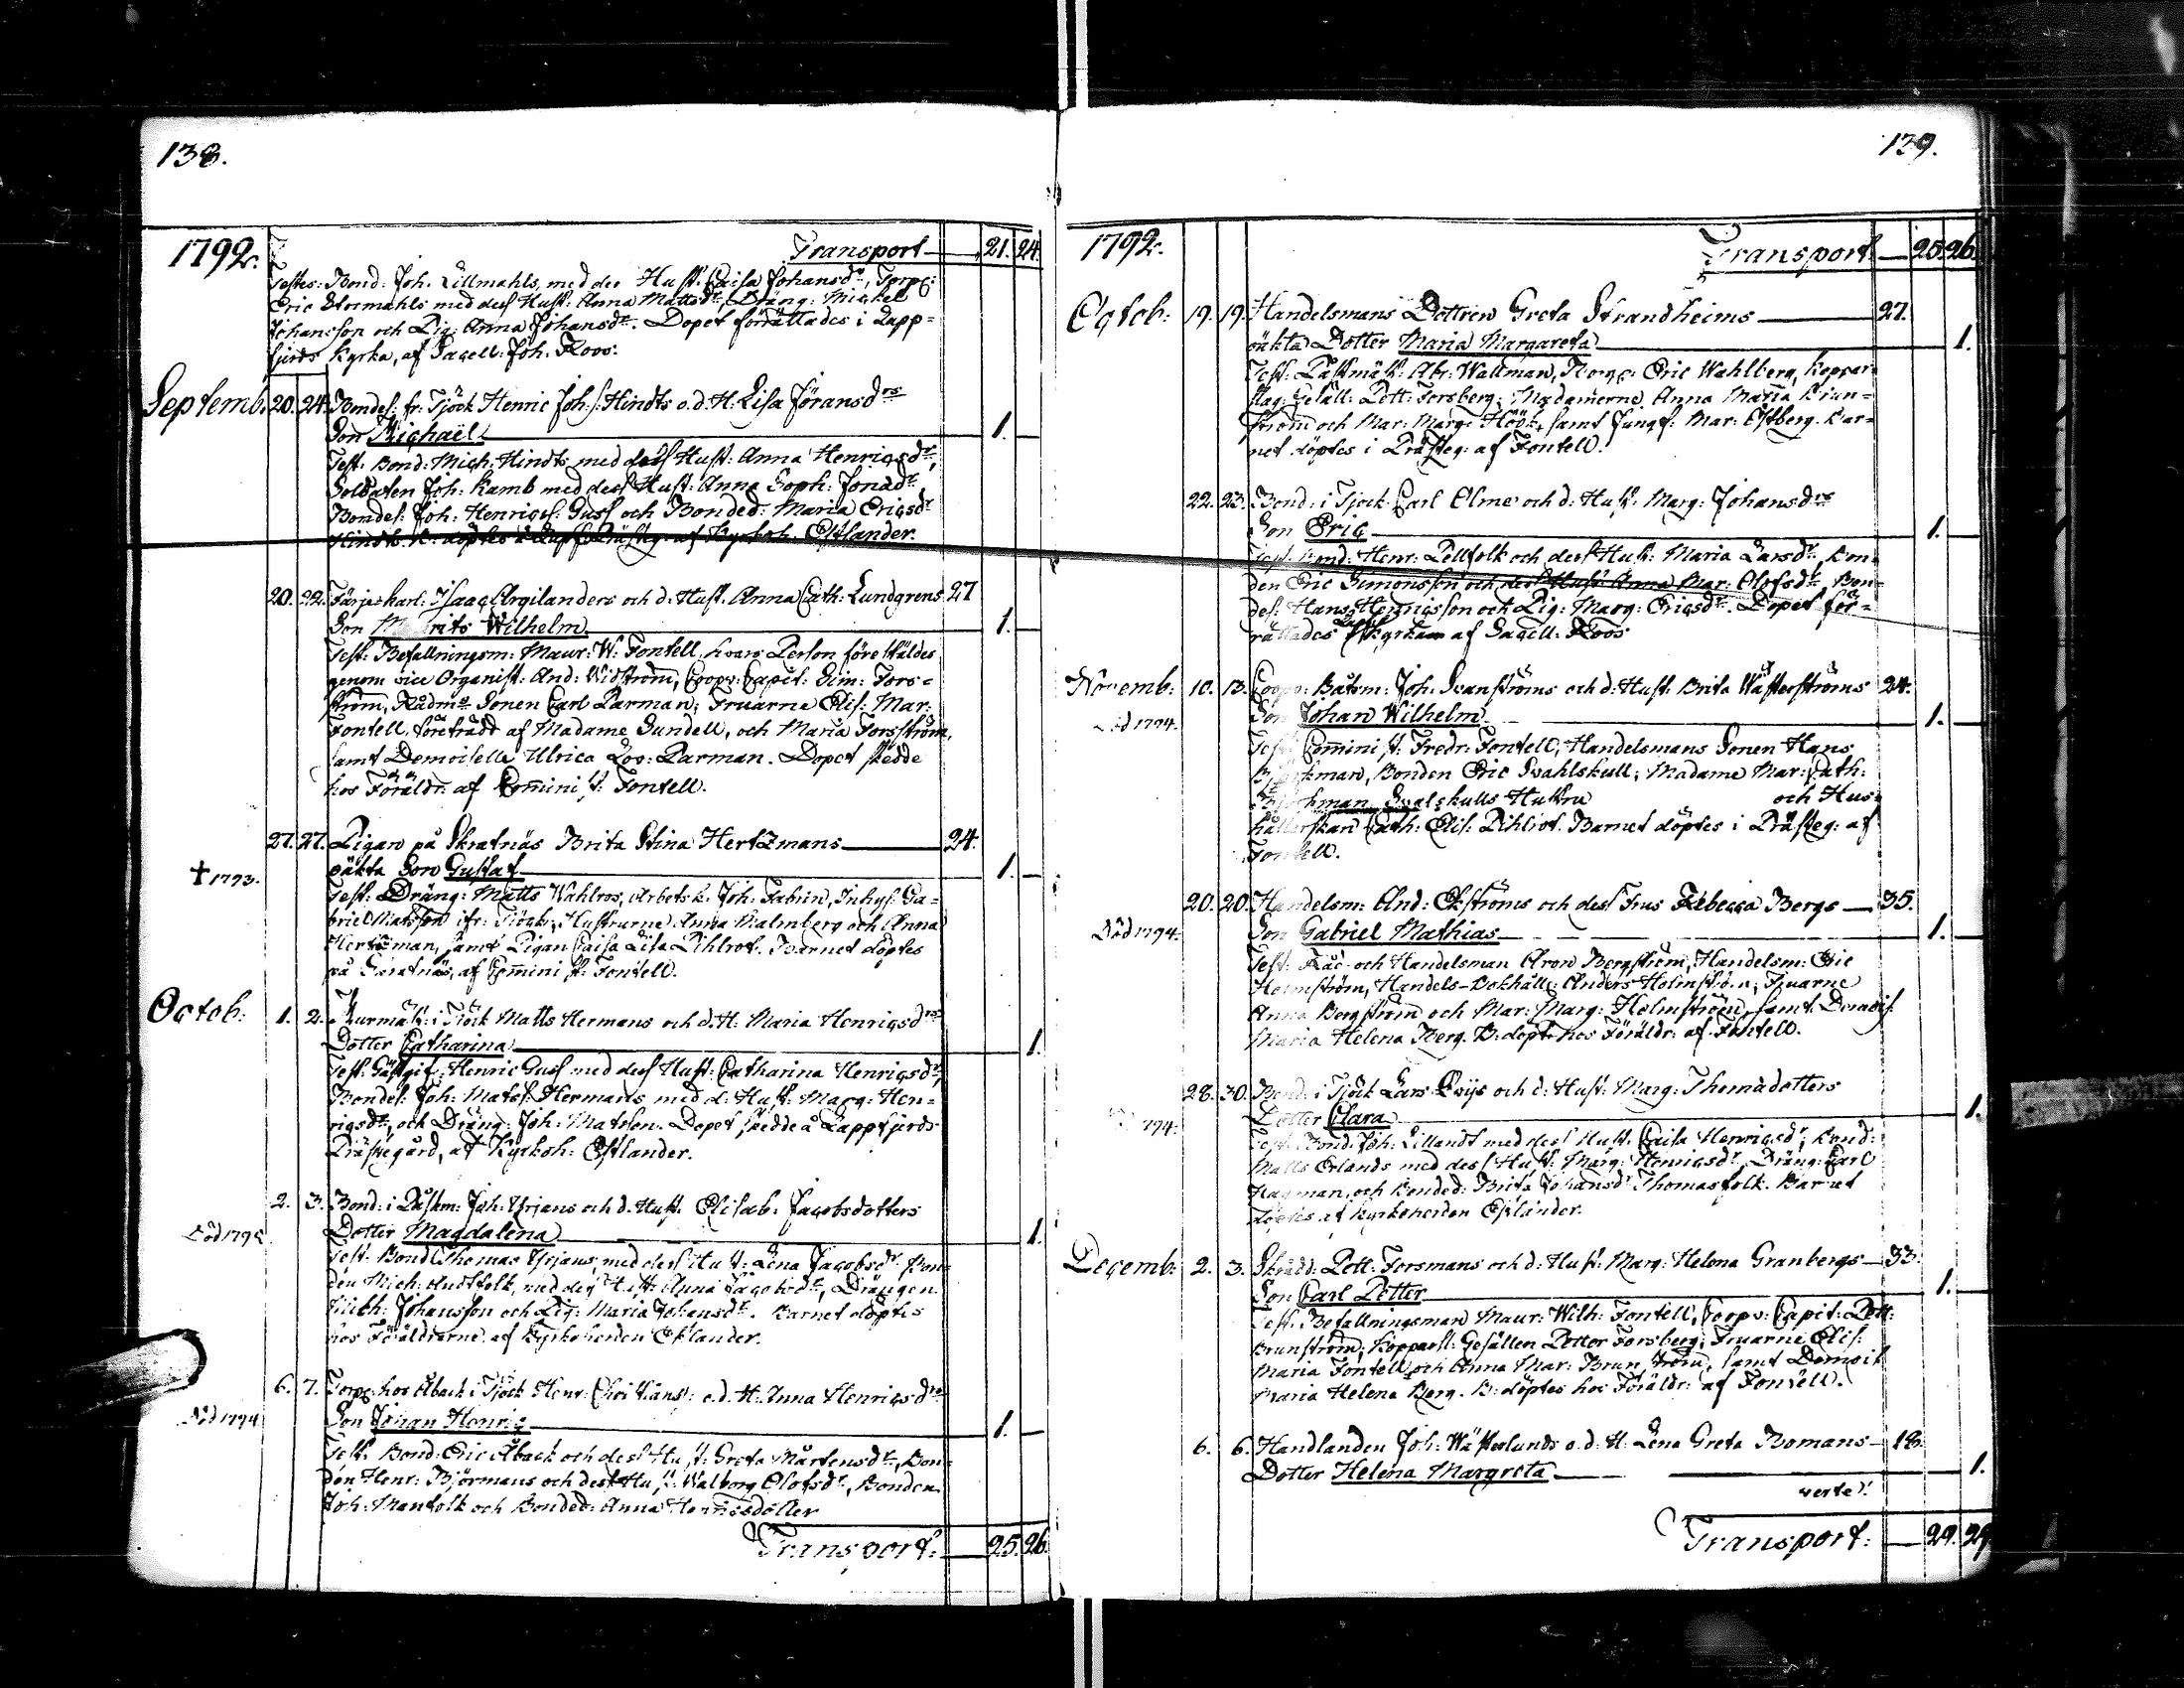 138.
1792. Transport 21. 24.
Testes: Bond: Joh. Lillmahls, med des Hust. Caisa Johansdr, Torp:
Eric Stormahls med des Hust: Anna Mattsdr, Dräng: Mickel
Johansson och Pig: Anna Johansdr. Dopet förrättades i Lapp=
fjerds Kyrka, af Sacell: Joh. Roos.
Septemb. 20. 24. Bondes: fr: Tjöck Henric Joh:s: Hindts o. d. H: Lisa Jöransdrs
Son Michaël 1.
Test: Bond: Mich. Hindts med dess Hust: Anna Henricsdr,
Soldaten Joh: Kamb med des Hust: Anna Soph: Jonaedr
Bondes: Joh: Henrics: Guss och Bonded: Maria Ericsdr
Hindts. B: döptes i Lapf. Prästeg: af Kyrkoh. Estlander.
20. 22. Färjekarl: Isaac Argilanders och d: Hust. Anna Cath: Lundgrens 27
Son Wilhelm 1.
Test: Befallningsm: Maur: W: Fontell, hvars Person föreställdes
genom vice Organist: And: Widström, Coopv: Capit: Sim: Fors=
ström, Rådm: Sonen Carl Parman; Fruarne Elis: Mar:
Fontell, företrädd af Madame Sundell, och Maria Forsström,
samt Demoiselle Ulrica Lov: Parman. Dopet skedde
hos Föräldr: af Com̄inist: Fontell.
27. 27. Pigan på Skratnäs Brita Stina Hertzmans 24.
† 1793. oäkta Son Gustaf 1.
Test: Dräng: Matts Wahlros, Arbetsk. Joh: Fabrin, Inhys: Ga=
briel Matsson ifr: Tjöck; Hustrurne Anna Malmberg och Anna
Hertzman, samt Pigan Caisa Lisa Pihlrot. Barnet döptes
på Skratnäs, af Com̄inist: Fontell.
Octob: 1. 2. i Tjöck Matts Hermans och d. H: Maria Henricsdrs
Dotter Catharina 1.
Test: Gästgif: Henric Guss med des Hust: Catharina Henricsdr,
Bondes: Joh: Mats: Hermans med d: Hust: Marg: Hen=
ricsdr, och Dräng: Joh: Matsson. Dopet skedde å Lappfjerds
Prästegård, af Kyrkoh: Estlander.
2. 3. Bond: i Joh: Yrjans och d. Hust. Elisab: Jacobsdotters
Dotter Magdalena 1.
Test: Bond Thomas Yrjans, med des Hust: Lena Jacobsdr Bon=
den Mich: med des Hust: Anna Jacobsdr, Drängen
Johansson och Pig: Maria Johansdr. Barnet döptes
hos Föräldrarne af Kyrkoherden Estlander.
6. 7. Torp: hos Åback i Tjöck Henr: Christians: o. d. H: Anna Henricsdrs
Död 1794 Son Johan Henric 1.
Test. Bond: Eric Åback och des Hust: Greta Mårtensdr, Bon=
den Henr: Björmans och des Hust: Walborg Olofsdr, Bonden
Joh: Manfolk och Bonded: Anna Henricsdotter
Transport: 25. 26.
139.
1792. Transport 25. 26.
Octob: 19. 19. Handelsmans Dottren Greta Strandheims 27.
oäkta Dotter Maria Margareta 1.
Test: Abr: Wallman, Borg: Eric Wahlberg, Koppar=
slag: Gesäll: Pett: Forsberg; Madamerne Anna Maria Brun=
ström och Mar: Marg: Höök, samt Jungf: Mar: Östberg. Bar=
net döptes i Prästeg: af Fontell.
22. 23. Bond: i Tjöck Carl Elme och d: Hust: Marg: Johansdrs
Son Eric 1.
Test. Bond: Henr: Pellfolk och des Hust: Maria Larsdr, Bon=
den Eric Simonsson och des Hust: Anna Mar: Olofsdr, Bon=
des: Hans Henricsson och Pig: Marg: Ericsdr. Dopet för=
rättades Kyrkan af Sacell: Roos
Novemb: 10. 13. Coopv: Båtsm: Joh: Svanströms och d: Hust. Brita Wästerströms 24.
Död 1794. Son Johan Wilhelm 1.
Test: Com̄inist: Fredr: Fontell, Handelsmans Sonen Hans
Björkman, Bonden Eric Svahlskull; Madame Mar: Cath:
Björkman, Svalskulls Hustru och Hus=
hållerskan Cath: Elis: Pihlrot. Barnet döptes i Prästeg: af
Fontell.
20. 20. Handelsm: And: Ekströms och des Frus Rebecca Bergs 35.
Död 1794. Son Gabriel Mathias 1.
Test: Råd- och Handelsman Aron Bergström, Handelsm: Eric
Holmström, Handels-Bokhåll: Anders Holmström; Fruarne
Anna Bergström och Mar: Marg: Holmström, samt Demois:
Maria Helena Berg. B: döpt. hos Föräldr: af Fontell.
28. 30. Bond: i Tjöck Lars och d: Hust: Marg: Thomædotters
Dotter Clara 1.
Test. Bond: Joh: Lillandt med des Hust. Caisa Henricsdr, Bond:
Matts Erlands med des Hust: Marg: Henricsdr, Dräng: Carl
Hagman, och Bonded: Brita Johansdr Thomasfolk. Barnet
döptes af Kyrkoherden Estlander.
Decemb: 2. 3. Skrädd: Pett: Forsmans och d: Hust: Marg: Helena Granbergs 33.
Son Carl Petter 1.
Test. Befallningsman Maur: Wilh: Fontell, Coopv: Capit: Pett:
Brunström, Kopparsl: Gesällen Petter Forsberg; Fruarne Elis:
Maria Fontell och Anna Mar: Brunström, samt Demois:
Maria Helena Berg. B: döptes hos Föräldr: af Fontell.
6. 6. Handlanden Joh: Wästerlunds o. d. H: Lena Greta Bomans 18.
Dotter Helena Margreta 1.
verte!
Transport: 29. 29.